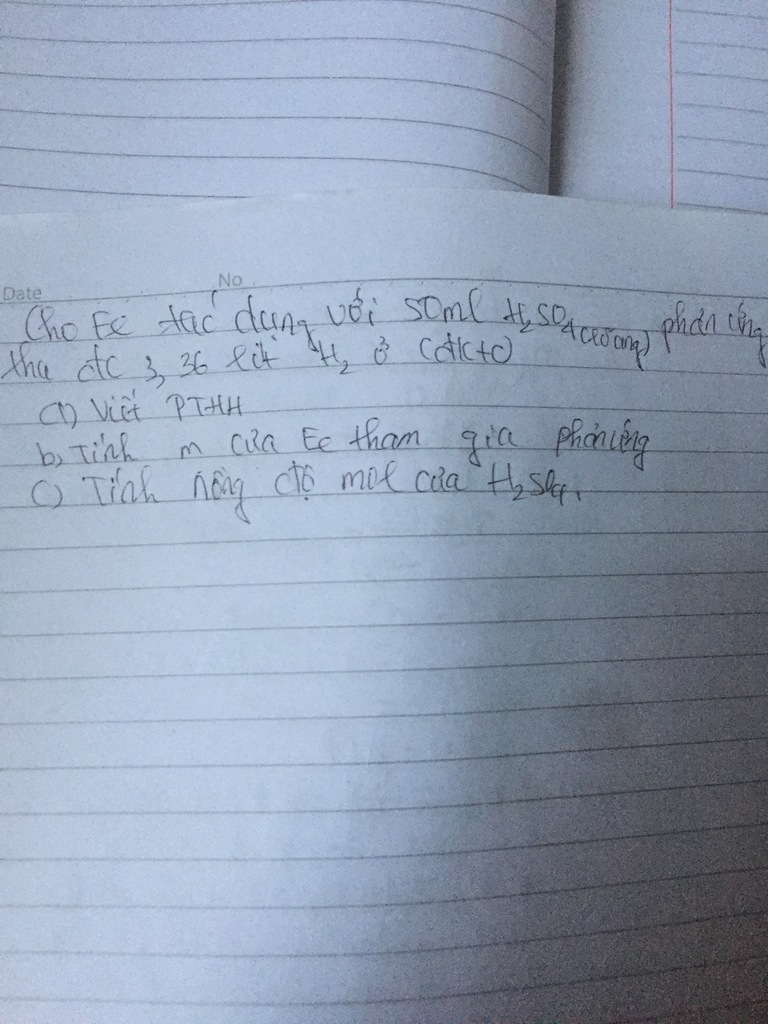 Date No
Cho Fe tác dụng với 50ml H₂SO₄(loãng) phản ứng
thu đc 3,36 lít H₂ ở (đktc)
a) Viết PTHH
b, Tính m của Fe tham gia phản ứng
c) Tính nồng độ mol của H₂SO₄.